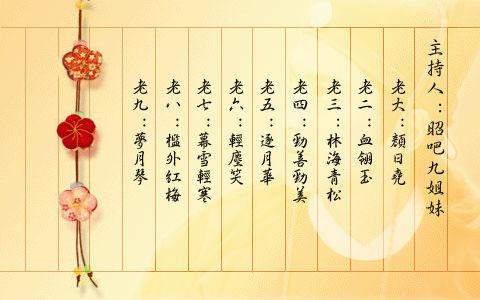 主持人：昭吧九姐妹
老大：顏日堯
老二：血翎玉
老三：林海青松
老四：勁善勁美
老五：逐月華
老六：輕塵笑
老七：暮雪輕寒
老八：檻外紅梅
老九：夢月琴